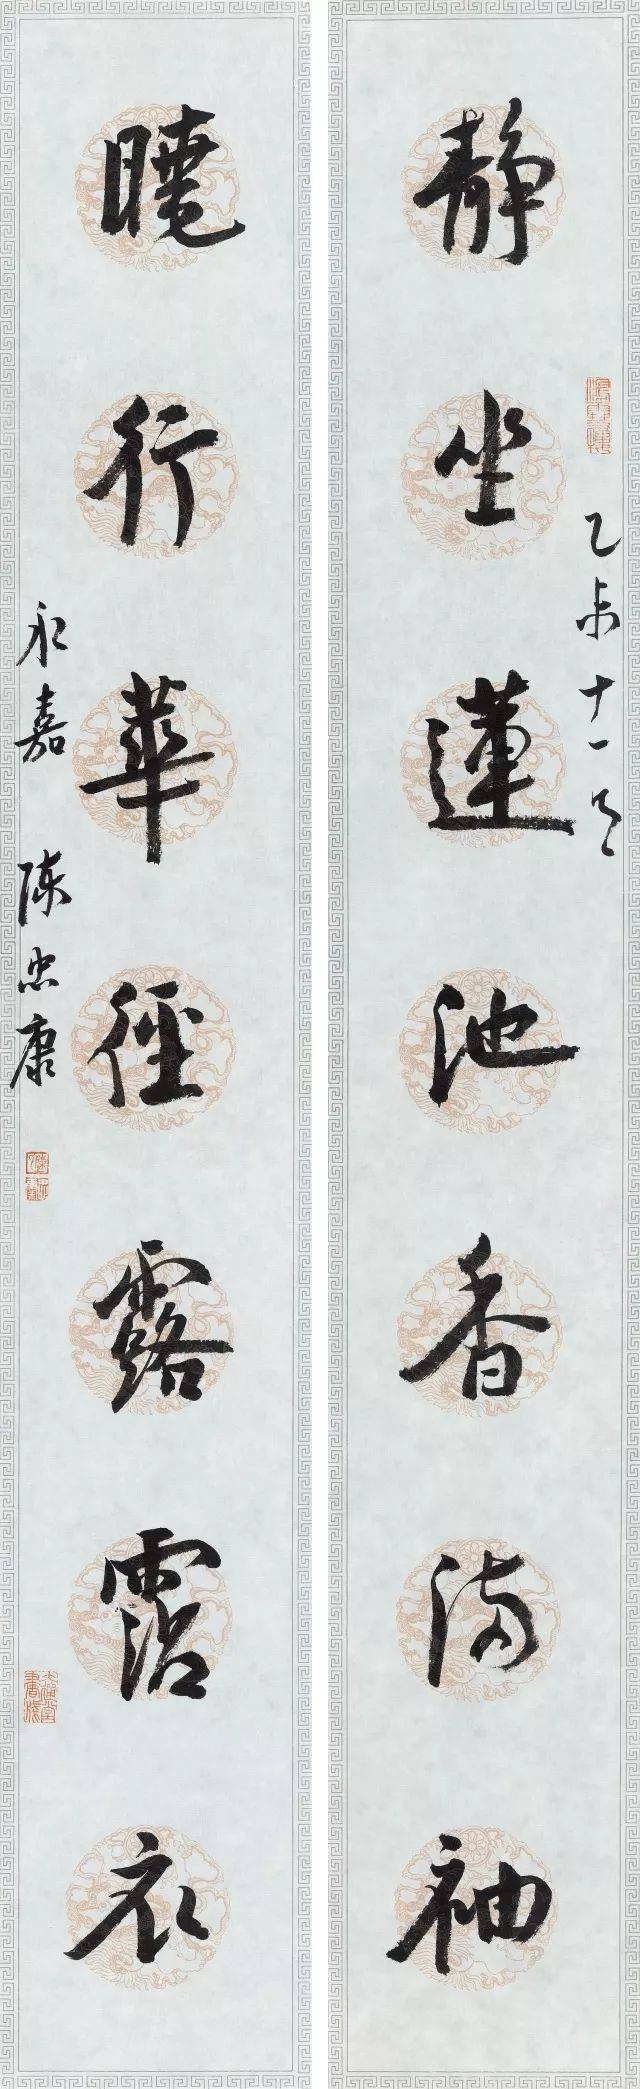 靜坐蓮池香滿袖
乙未十一月
曉行華徑露霑衣
永嘉 陳忠康